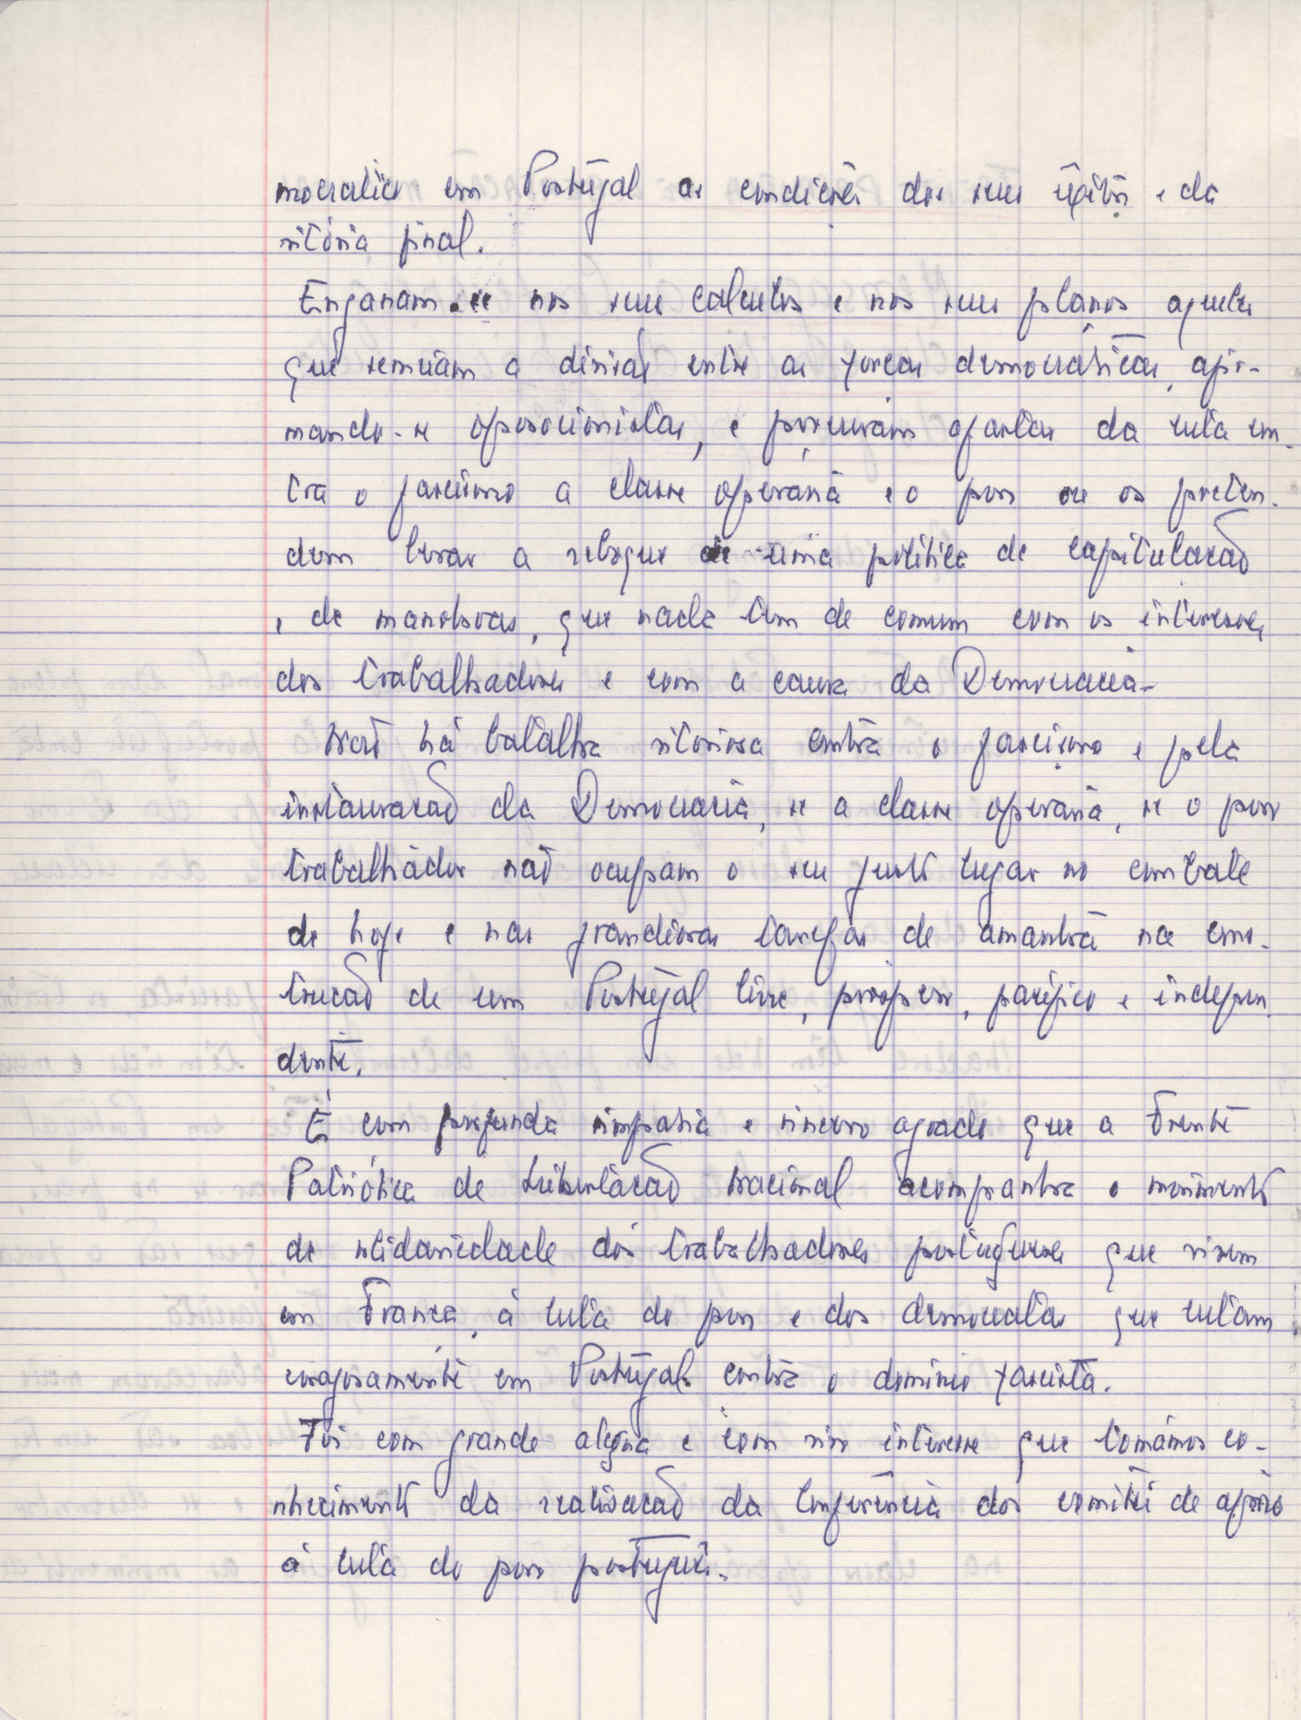 mocratico em Portugal as condições dos seus êxitos e da
vitória final.
Enganam-se nos seus calculos e nos seus planos aqueles
que semeiam a divisão entre as forças democráticas, afir-
mando-se oposocionistas, e procuram afastar da luta con-
tra o fascismo a classe operária e o povo ou os preten-
dem levar a reboque de uma politica de capitulacão
e de manobras, que nada tem de comum com os interesses
dos trabalhadores e com a causa da Democracia.
Não há batalha vitoriosa contra o fascismo e pela
instauracão da Democracia, se a classe operaria, se o povo
trabalhador não ocupam o seu justo lugar no combate
de hoje e nas grandiosas tarefas de amanhã na cons-
trucão de um Portugal livre, próspero, pacifico e indepen-
dente.
É com profunda simpatia e sincero agrado que a Frente
Patriótica de Libertacão Nacional acompanha o movimento
de solidariedade dos trabalhadores portugueses que vivem
em França, á luta do povo e dos democratas que lutam
corajosamente em Portugal contra o dominio fascista.
Foi com grande alegria e com vivo interesse que tomámos co-
nhecimento da realisacão da Conferência dos comités de apoio
á luta do povo português.